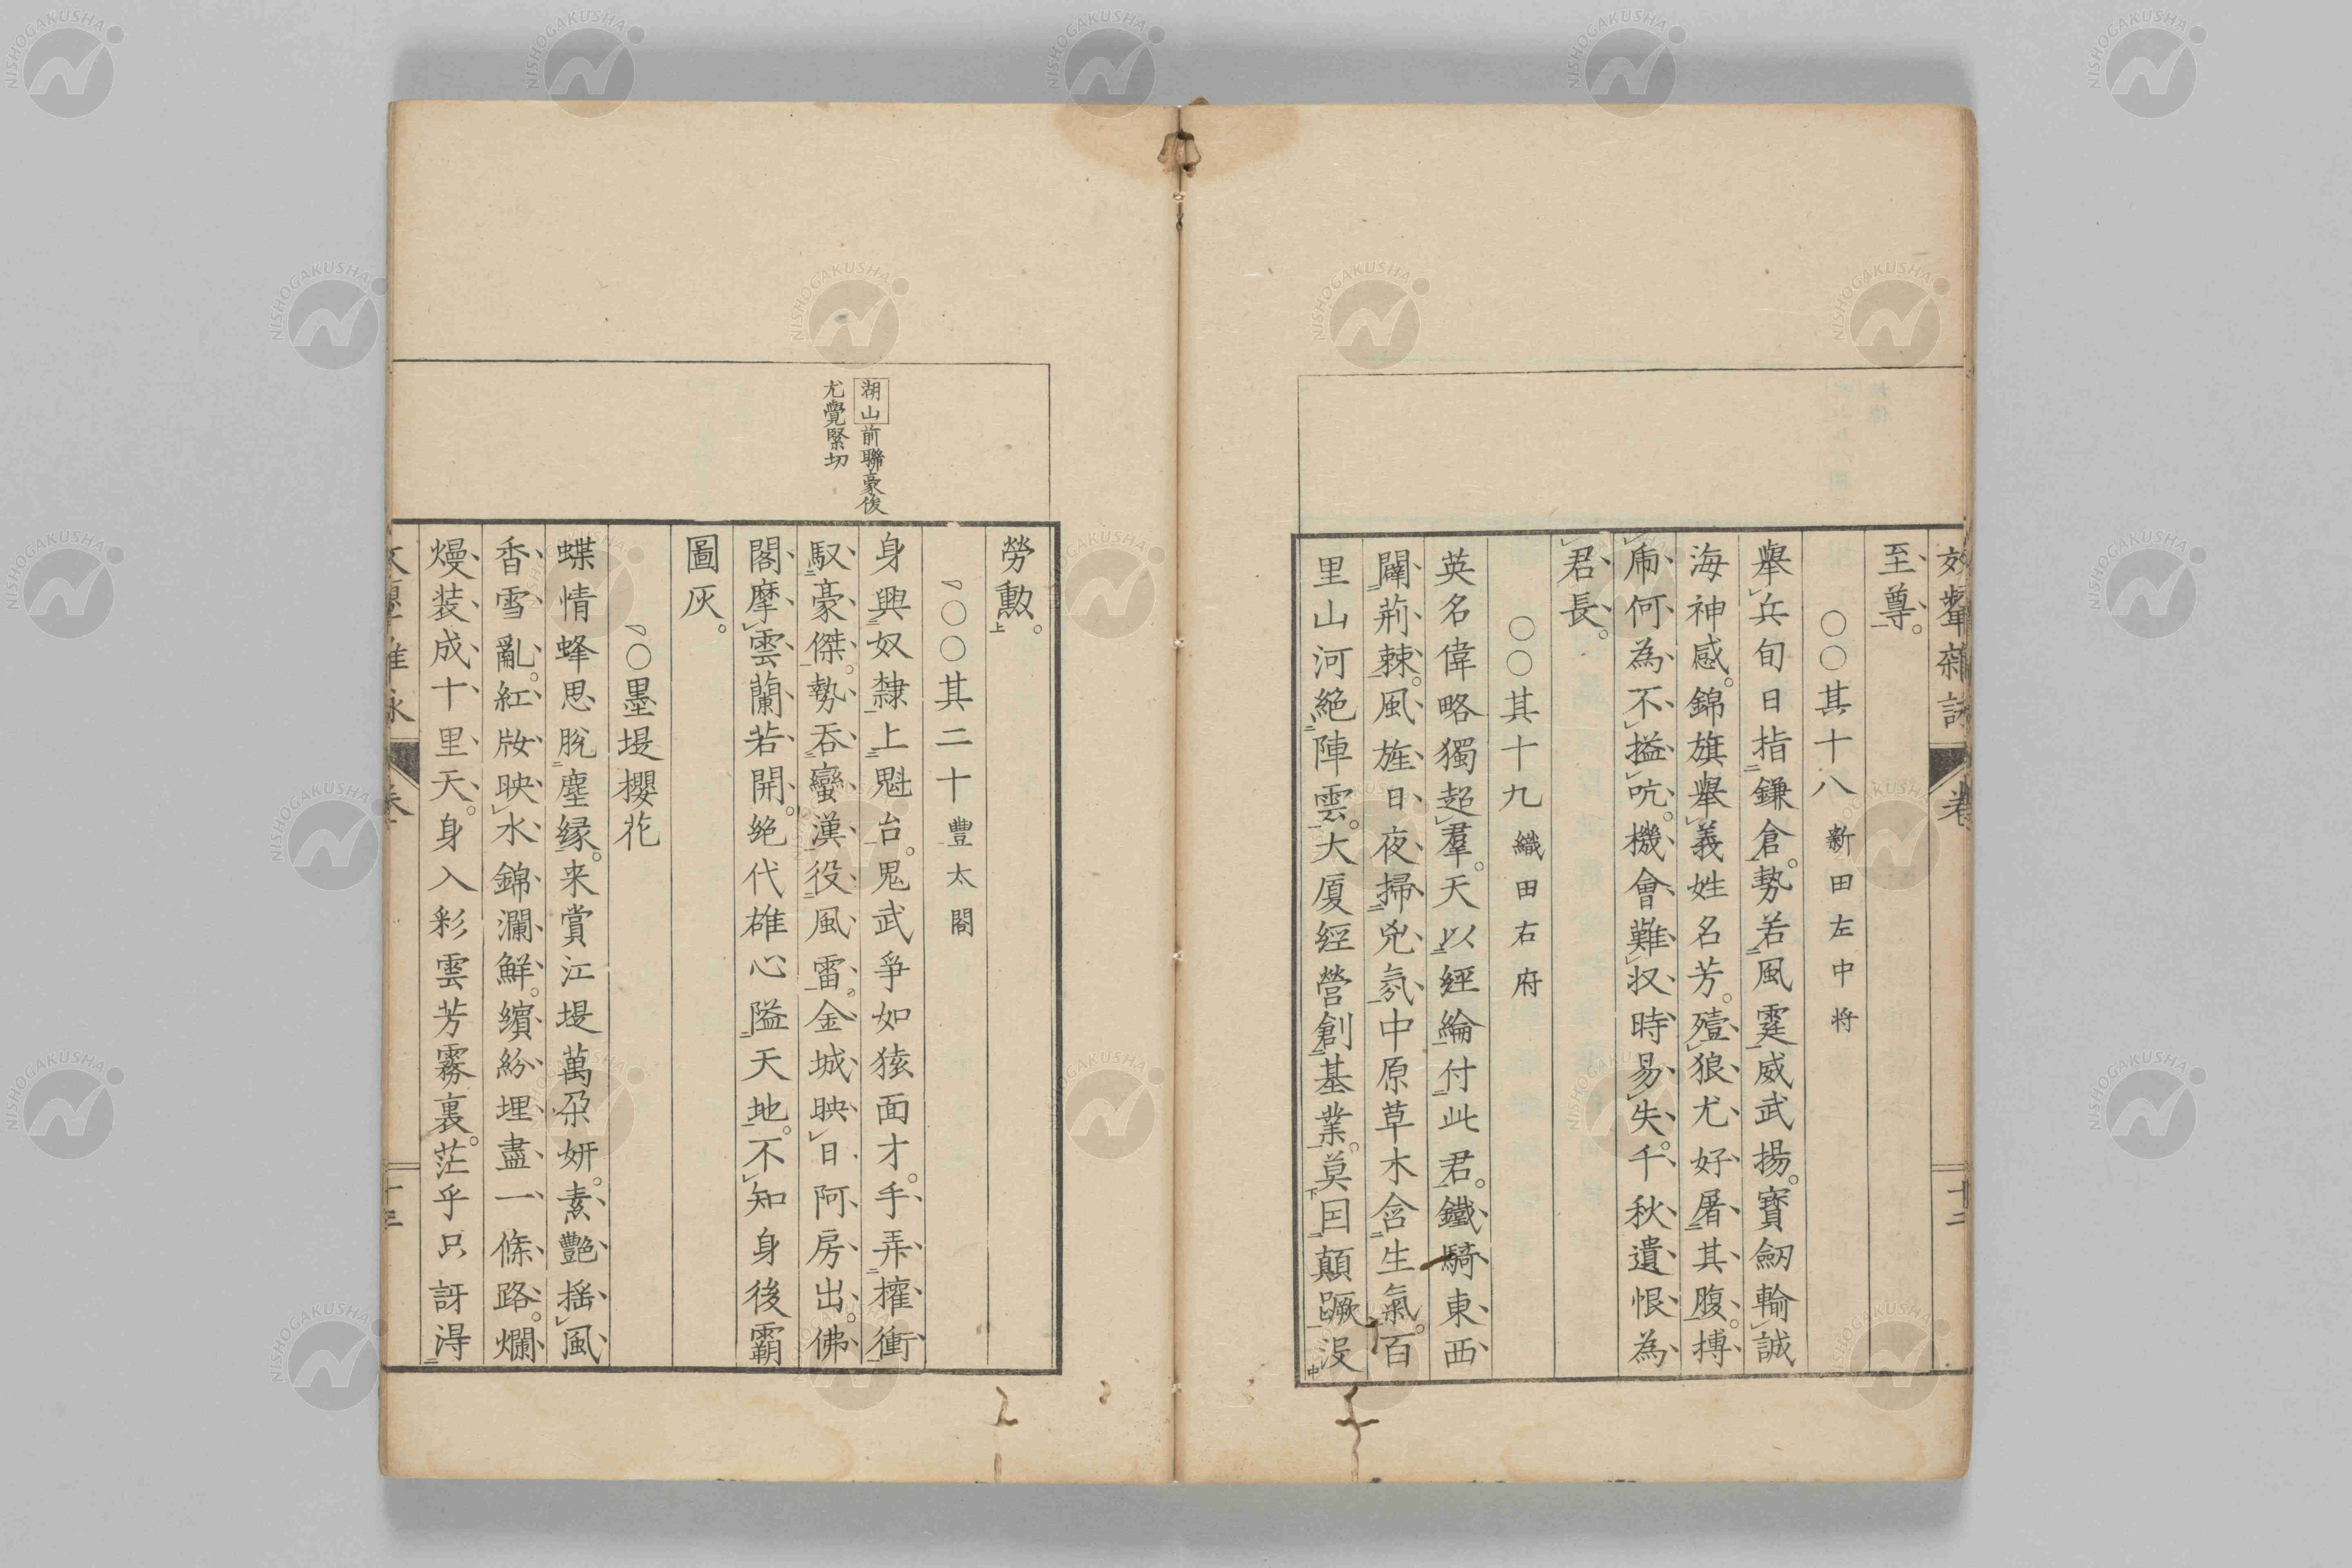 效顰雜詠 卷 十二
至尊。
〇〇其十八 新田左中将
擧兵旬日指鎌倉。勢若風霆威武揚。寳劒輸誠
海神感。錦旗擧義姓名芳。殪狼尤好屠其腹。搏
乕何為不搤吭。機會難扠時易失。千秋遺恨為
君長。
〇〇其十九 織田右府
英名偉略獨超羣。天以經綸付此君。鐵騎東西
闢荊棘。風旌日夜掃兇氛。中原草木含生氣。百
里山河絶陣雲。大厦經營創基業。莫因顛蹶没
勞勳。
〇〇其二十 豐太閤
身興奴隸上魁台。鬼武爭如猿面才。手弄權衝
馭豪傑。勢吞蠻漢役風雷。金城映日阿房出。佛
閣摩雲蘭若開。絶代雄心隘天地。不知身後霸
圖灰。
〇墨堤櫻花
蝶情蜂思脫塵縁。来賞江堤萬朶妍。素艷揺風
香雪亂。紅妝映水錦瀾鮮。繽紛埋盡一條路。爛
熳装成十里天。身入彩雲芳霧裏。茫乎只訝淂
湖山前聯豪俊
尤覺緊切
NISHOGAKUSHA